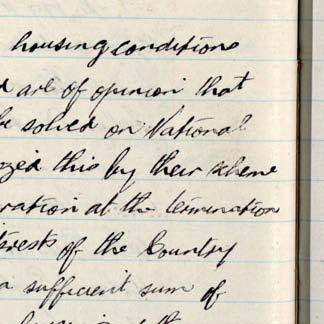 housing conditions
are of opinion that
be solved on National
this by their scheme
at the termination
of the Country
a sufficient sum of